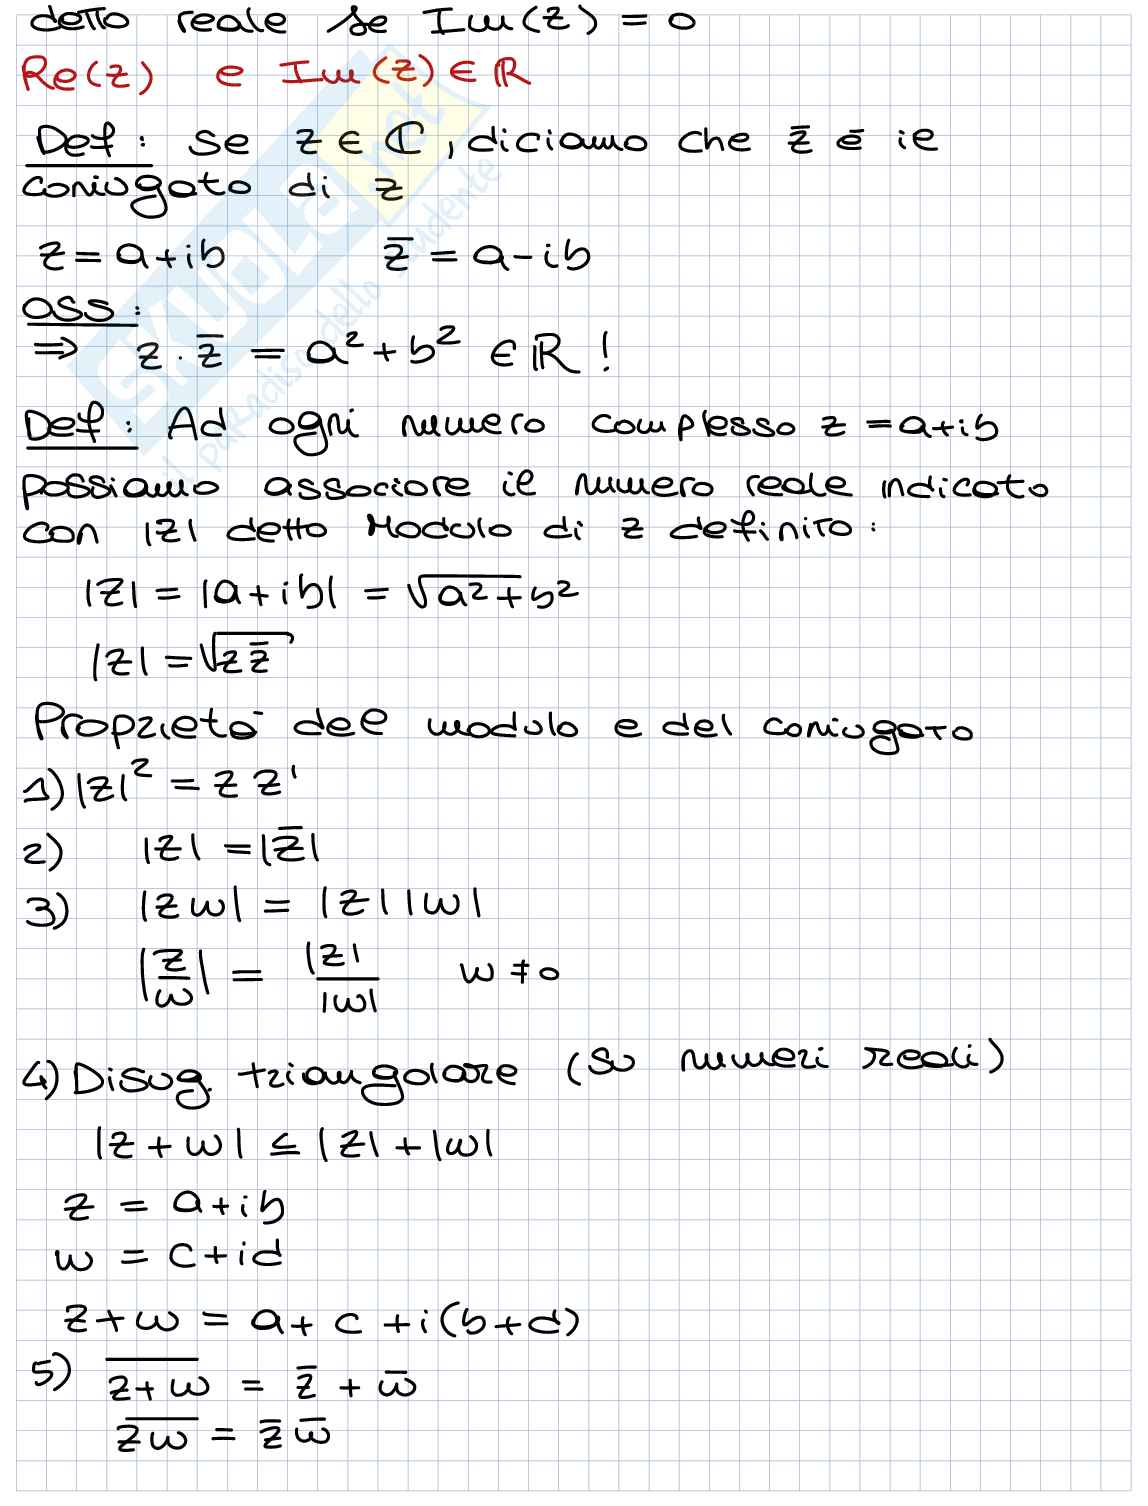 detto reale se Im(z) = 0
Re(z) e Im(z) ∈ ℝ
Def: se z ∈ ℂ, diciamo che z̄ è il
coniugato di z
z = a+ib z̄ = a-ib
oss:
⇒ z · z̄ = a² + b² ∈ ℝ !
Def: Ad ogni numero complesso z = a+ib
possiamo associare il numero reale indicato
con |z| detto Modulo di z definito:
|z| = |a+ib| = √a²+b²
|z| = √z z̄
Proprietà del modulo e del coniugato
1) |z|² = z z'
2) |z| = |z̄|
3) |zw| = |z| |w|
|z/w| = |z|/|w| w ≠ 0
4) Disug. triangolare (su numeri reali)
|z + w| ≤ |z| + |w|
z = a+ib
w = c+id
z+w = a+c+i(b+d)
5) \overline{z+w} = z̄ + w̄
\overline{zw} = z̄ w̄
SKUOLA.net
il paradiso dello studente